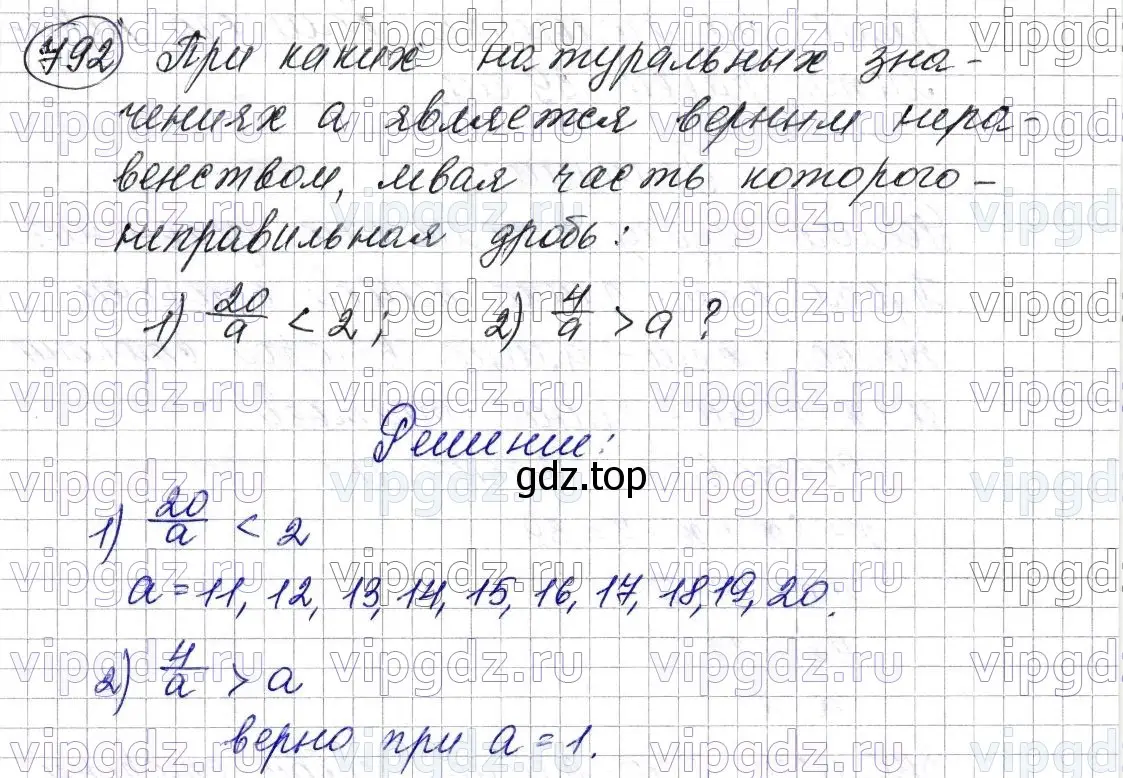 792 При каких натуральных зна-
чениях а является верным нера-
венством, левая часть которого -
неправильная дробь:
1) 20/а < 2; 2) 4/а > а?
Решение:
gdz.top
1) 20/а < 2
а = 11, 12, 13, 14, 15, 16, 17, 18, 19, 20.
2) 4/а > а
верно при а = 1.